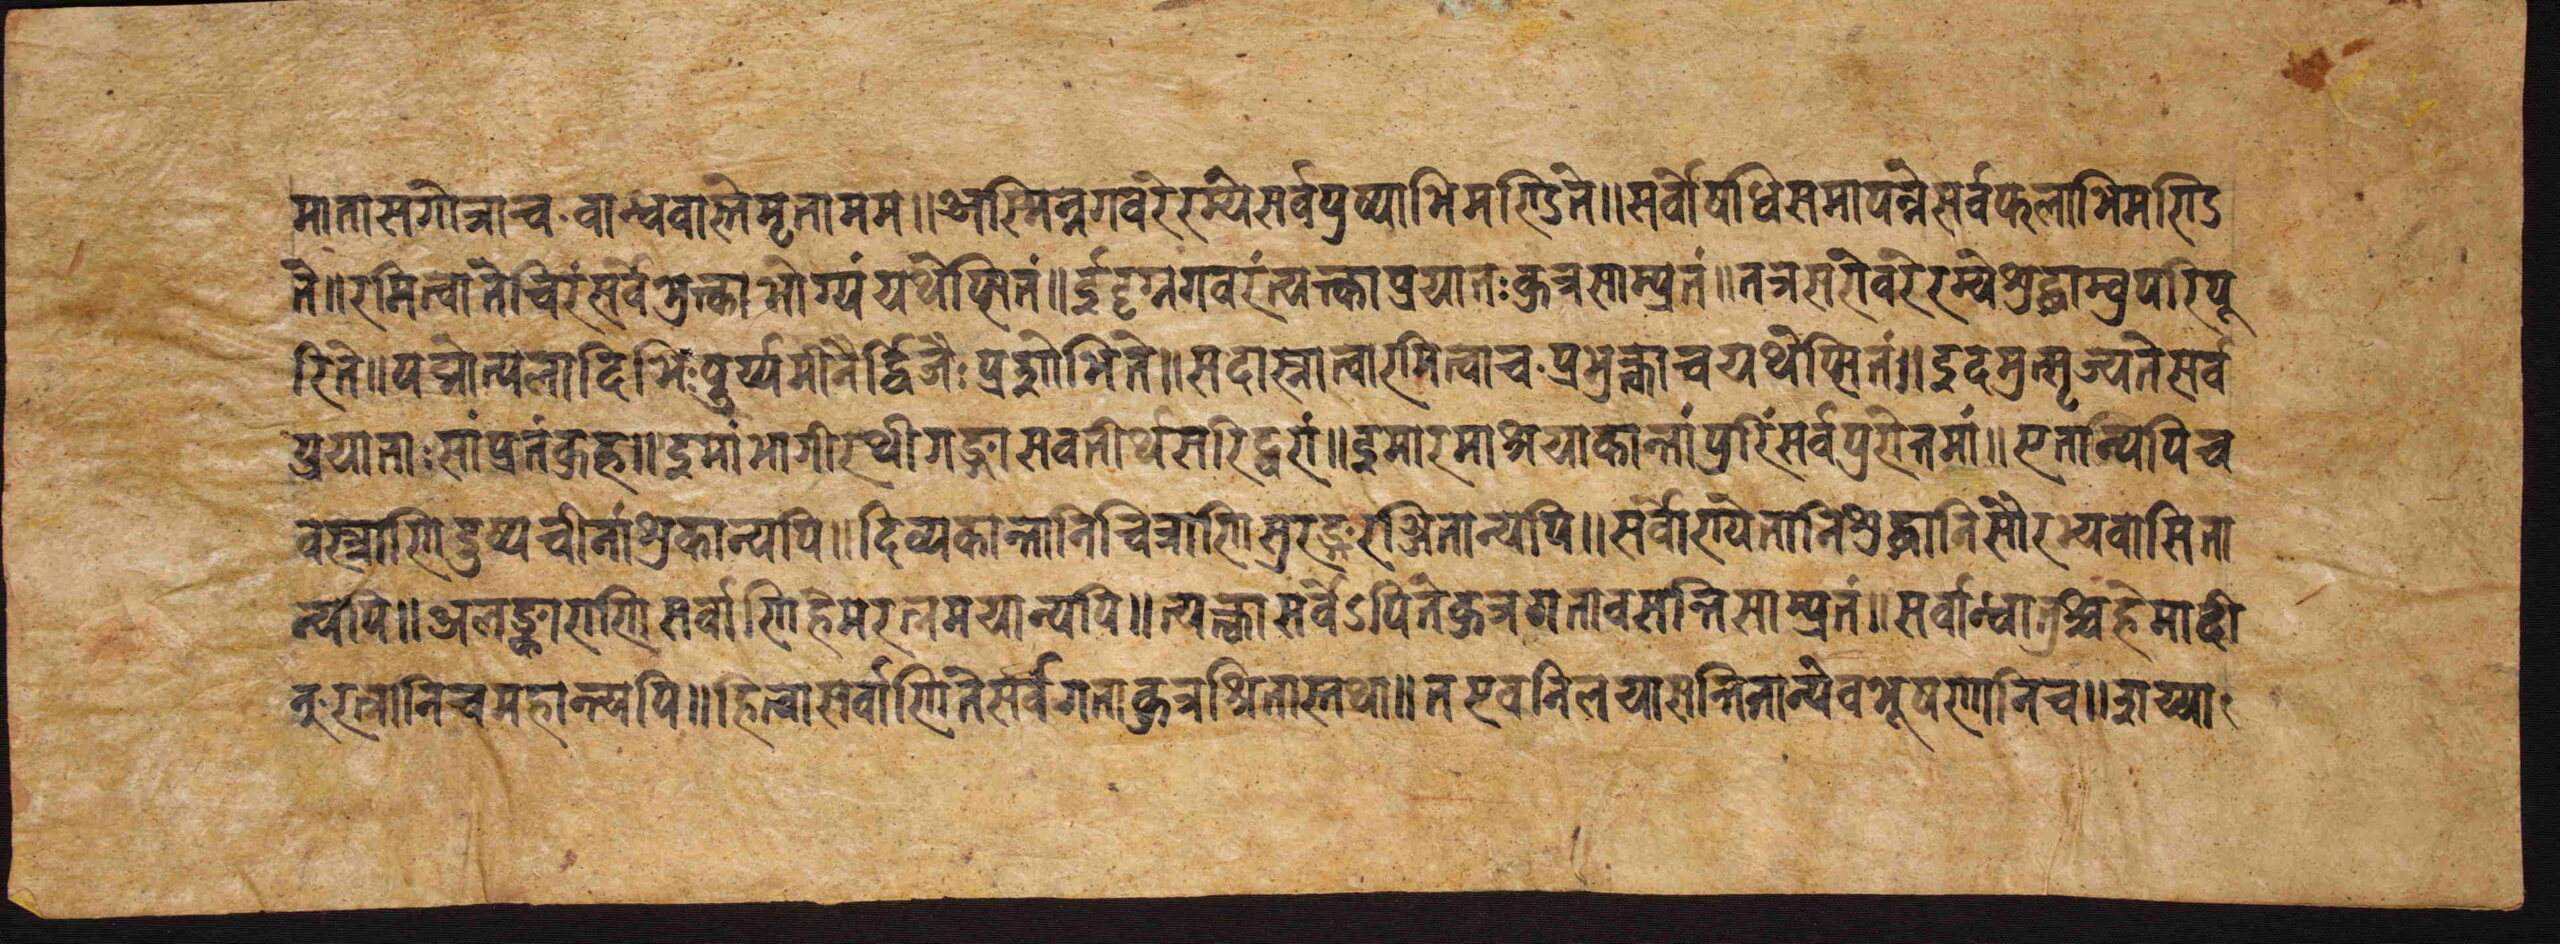 माता सगोत्राच बान्धवास्ते मृता मम ॥ अस्मिन्नगवरे रम्ये सर्वपुष्पाभिमण्डिते ॥ सर्वौषधिसमापन्ने सर्वफलाभिमण्डि
ते ॥ रमित्वा ते चिरं सर्वे भुक्त्वा भोग्यं यथेप्सितं ॥ ईदृग्नगवरं त्यक्त्वा प्रयातः कुत्र साम्प्रतं ॥ तत्र सरोवरे रम्ये शुद्धाम्बुपरिपू
रिते ॥ पद्मोत्पलादिभिः पुष्पे मीनैर्द्विजैः प्रशोभिते ॥ सदा स्नात्वा रमित्वा च प्रभुक्त्वा च यथेप्सितं ॥ इदमुत्सृज्य ते सर्वे
प्रयाताः सांप्रतं कुह ॥ इमां भागीरथी गङ्गा सवतीर्थसरिद्वरां ॥ इमा रमाश्रया कान्तां पुरिं सर्वपुरोत्तमां ॥ एतान्यपि च
वस्त्राणि दुष्यचीनांशुकान्यपि ॥ दिव्यकान्तानि चित्राणि सुरङ्गरञ्जितान्यपि ॥ सर्वाण्येतानि शुद्धानि सौरभ्यवासिता
न्यपि ॥ अलङ्काराणि सर्वाणि हेमरत्नमयान्यपि ॥ त्यक्त्वा सर्वेऽपि ते कुत्र गता वसन्ति साम्प्रतं ॥ सर्वान्धातुश्च हेमादी
नु रत्नानि च महान्त्यपि ॥ हित्वा सर्वाणि ते सर्वे गता कुत्र श्रितास्तथा ॥ त एव निलया सन्ति तान्येव भूषणानि च ॥ शय्याः